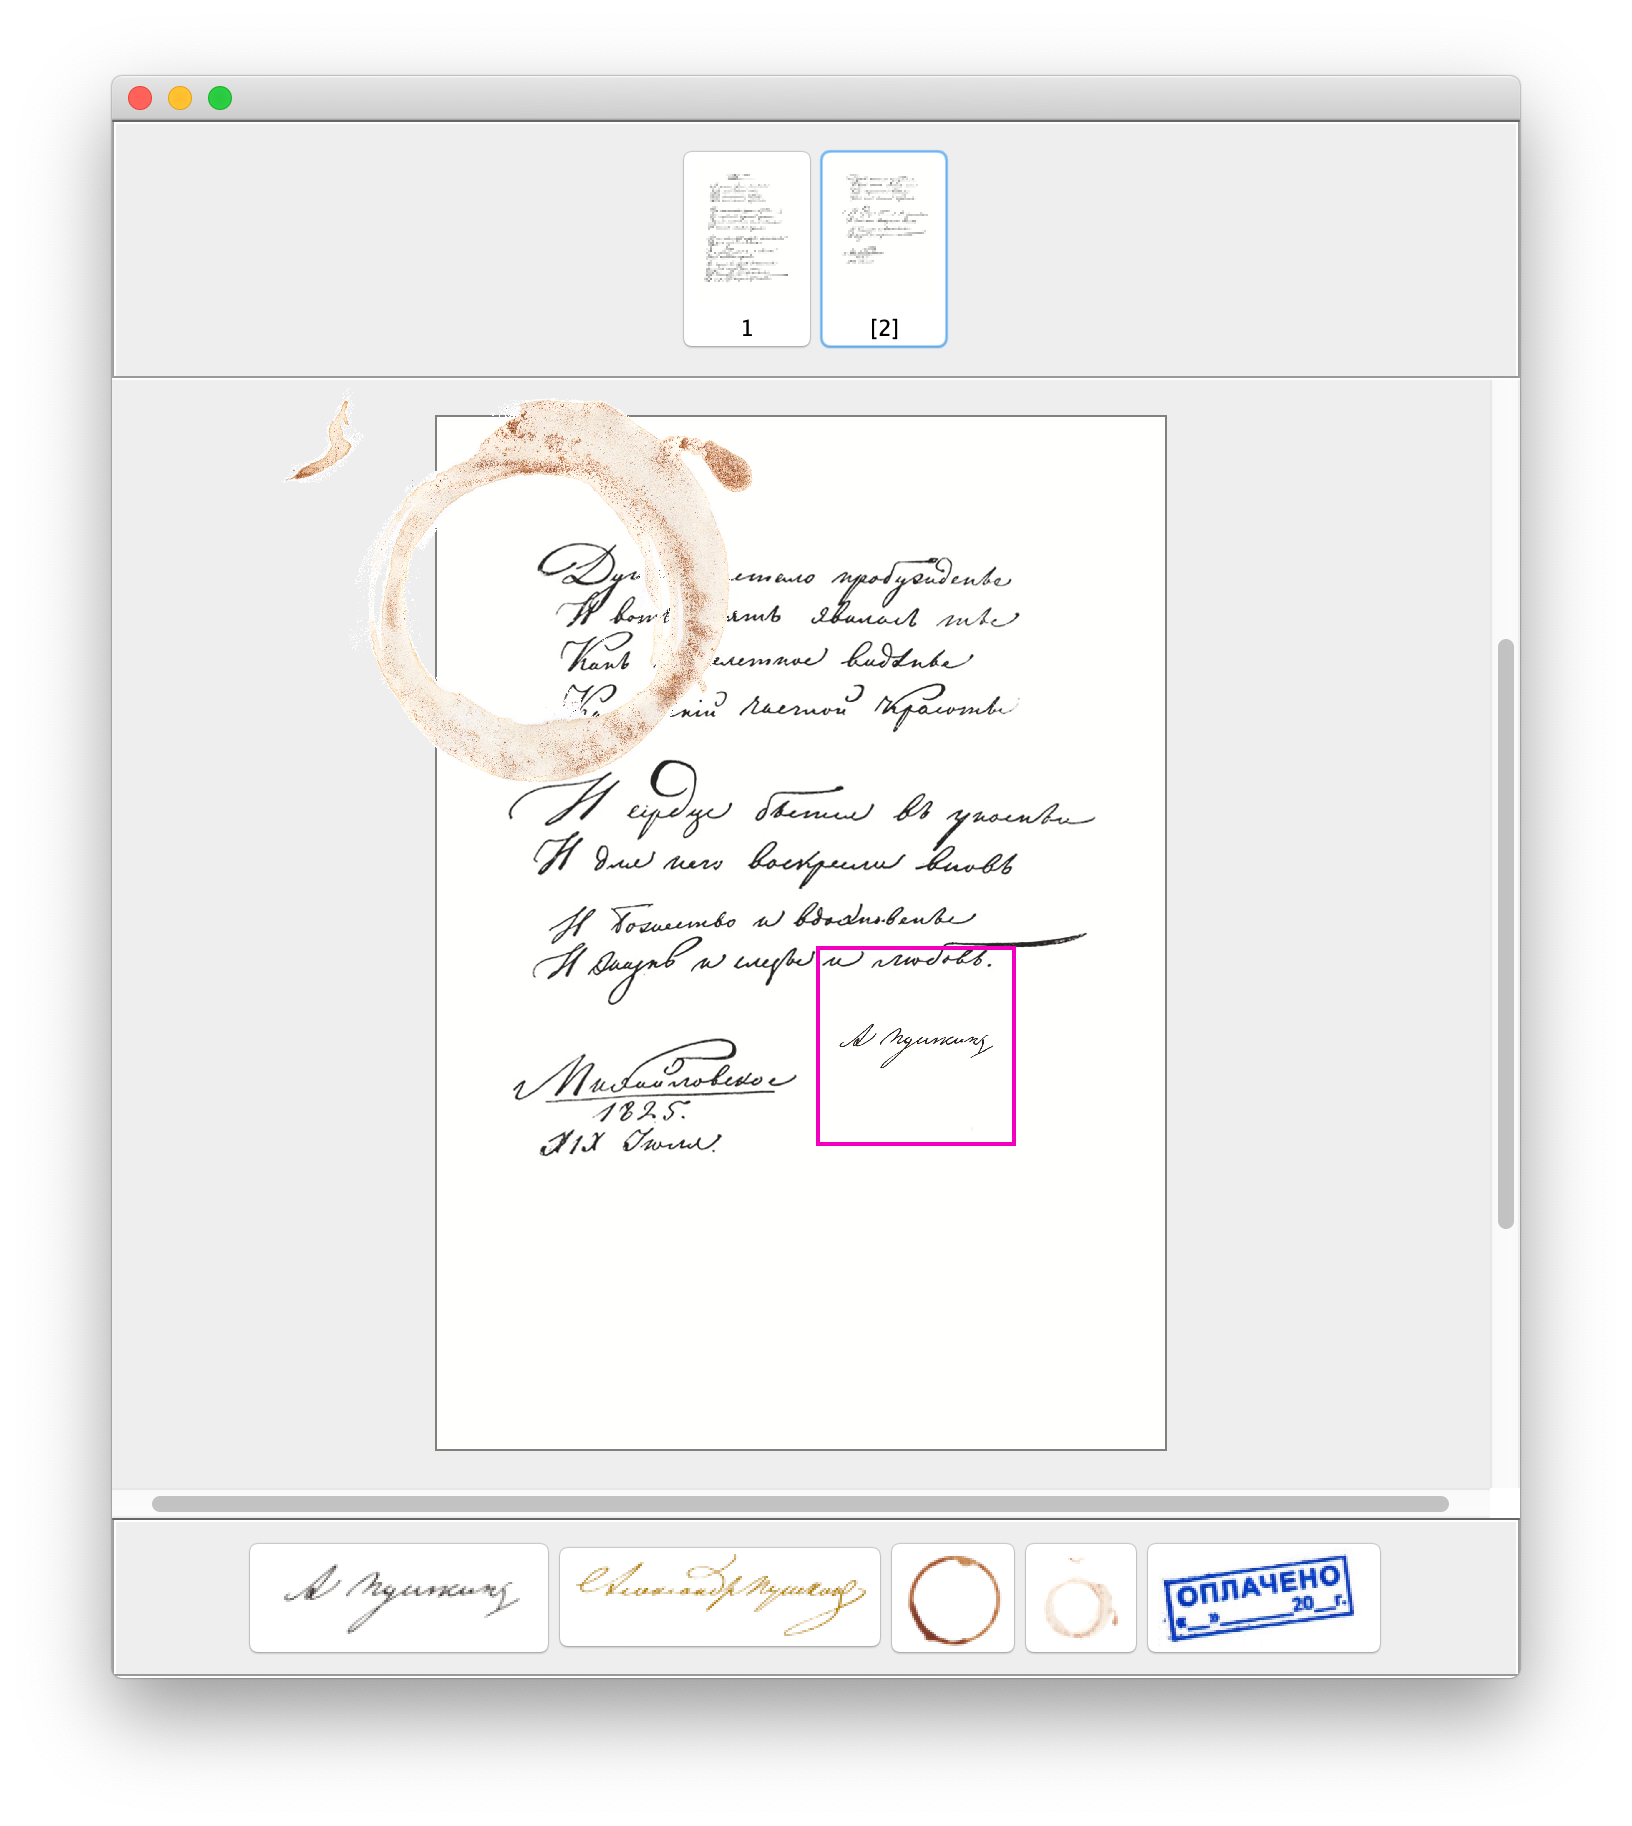 1
[2]
пробужденье
И явилась ты
Какъ видѣнье
чистой красоты
И сердце бьется въ упоеньи
И для него воскресли вновь
И божество и вдохновенье
И жизнь и слезы и любовь.
А Пушкинъ
Михайловское
1825.
XIX Іюля.
А Пушкинъ
Александръ Пушкинъ
ОПЛАЧЕНО
«__»______20__г.